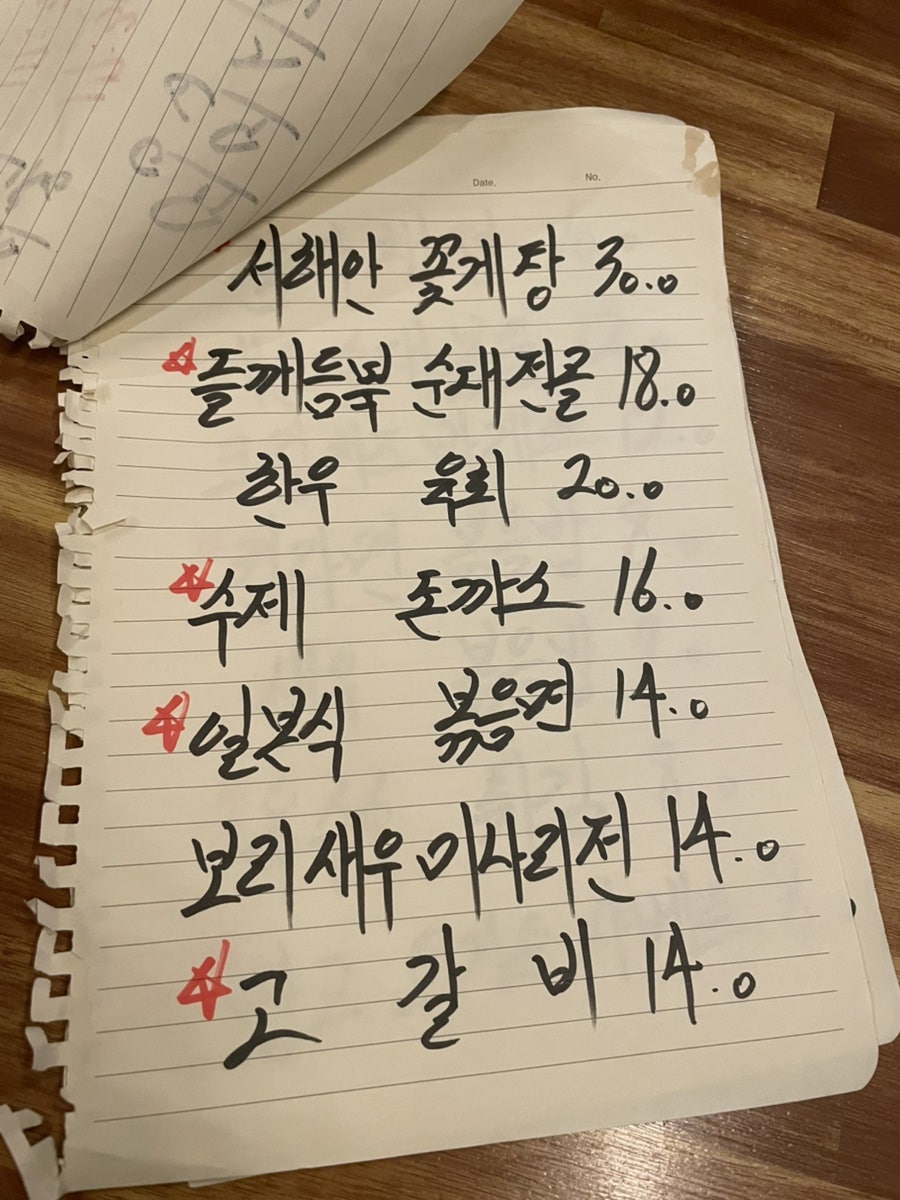 Date. No.
서해안 꽃게탕 30.0
들깨듬뿍 순대전골 18.0
한우 육회 20.0
수제 돈까스 16.0
일본식 볶음면 14.0
보리새우미나리전 14.0
고 갈 비 14.0